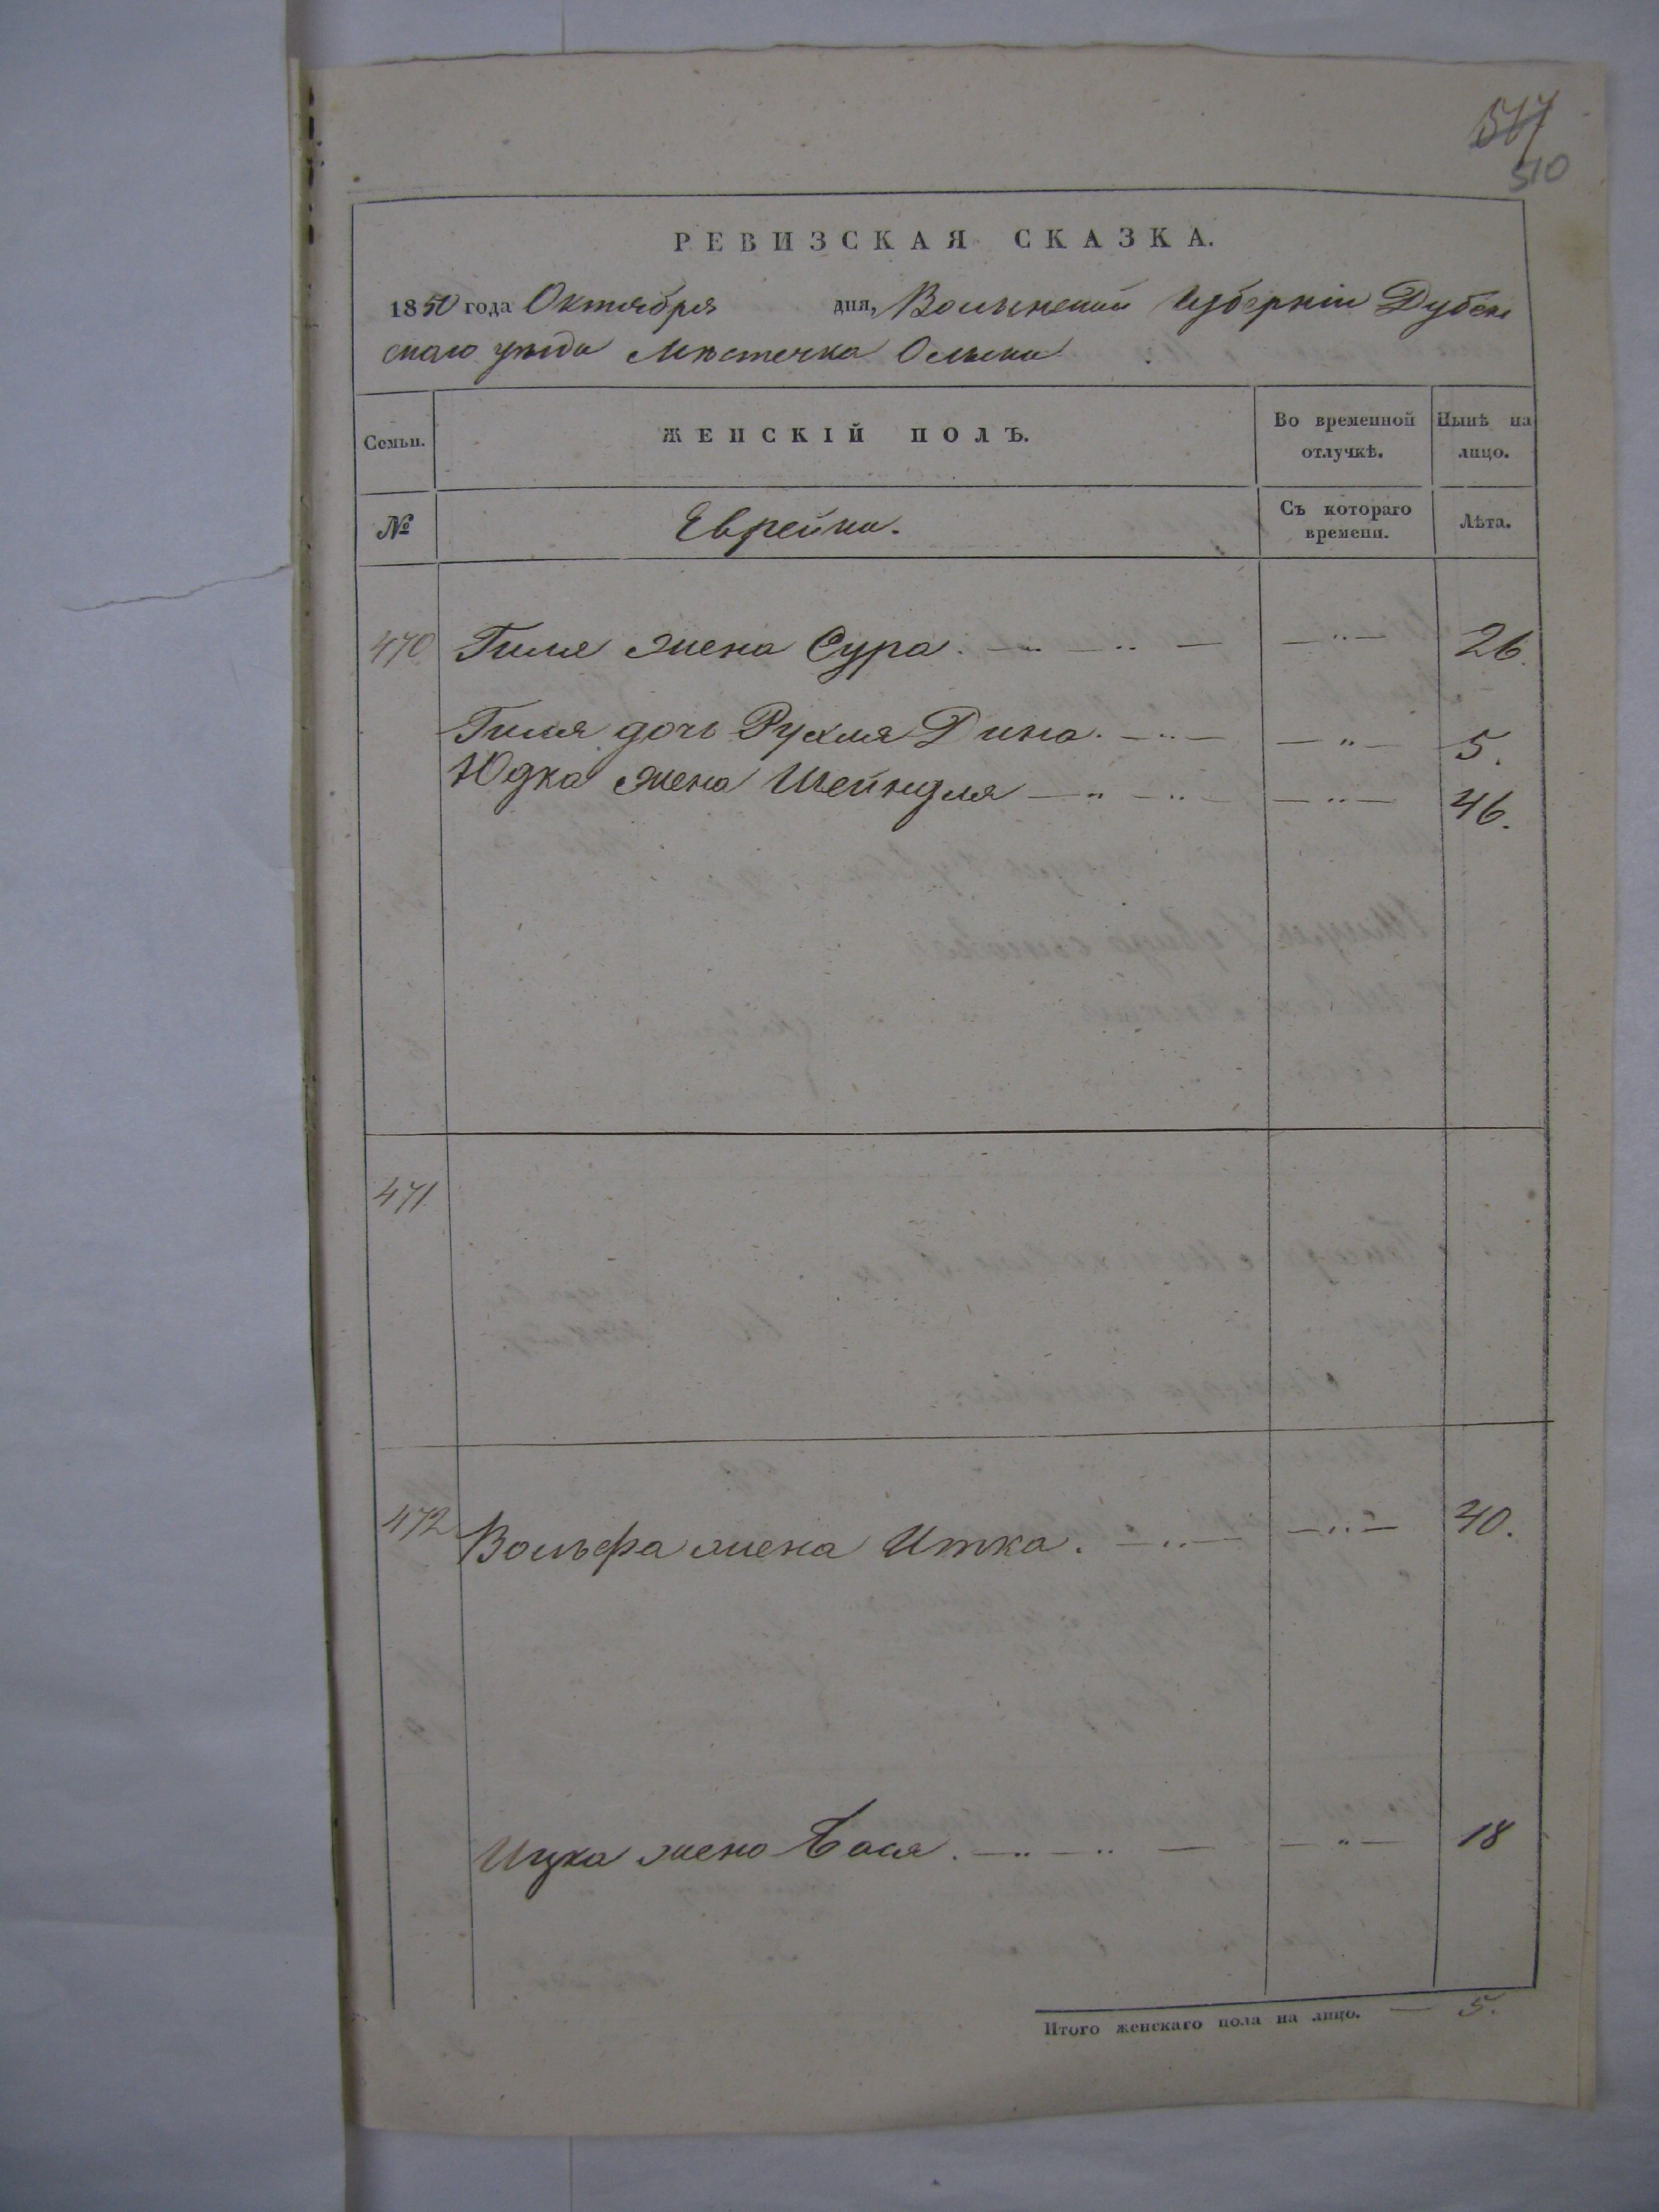 510
РЕВИЗСКАЯ СКАЗКА.
1850 года Октября дня, Волынской Губерніи Дубен
скаго уезда Мѣстечка Олыки
Семьи. ЖЕНСКІЙ ПОЛЪ. Во временной отлучкѣ. Нынѣ на лицо.
№ Еврейки. Съ котораго времени. Лѣта.
470 Гиля жена Сура. — " — " — — " — 26.
Гиля дочь Рухля Дина. — " — — " — 5.
Юдка жена Шейндля — " — " — — " — 46.
471
472 Вольфа жена Итка. — " — — " — 40.
Ицка жена Бася. — " — " — — " — 18
Итого женскаго пола на лицо. — 5.